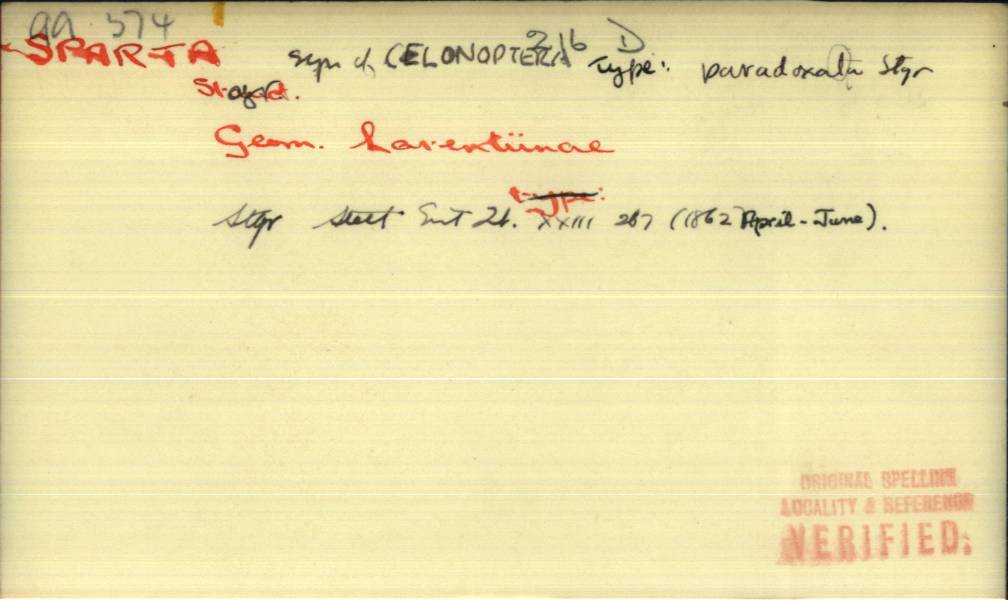 99 574
SPARTA syn of CELONOPTERA 216 D Type: paradoxata Stgr
Stgr.
Geom. Larentiinae
type:
Stgr Stett Ent Zt. XXIII 267 (1862 April-June).
ORIGINAL SPELLING
LOCALITY & REFERENCE
VERIFIED.